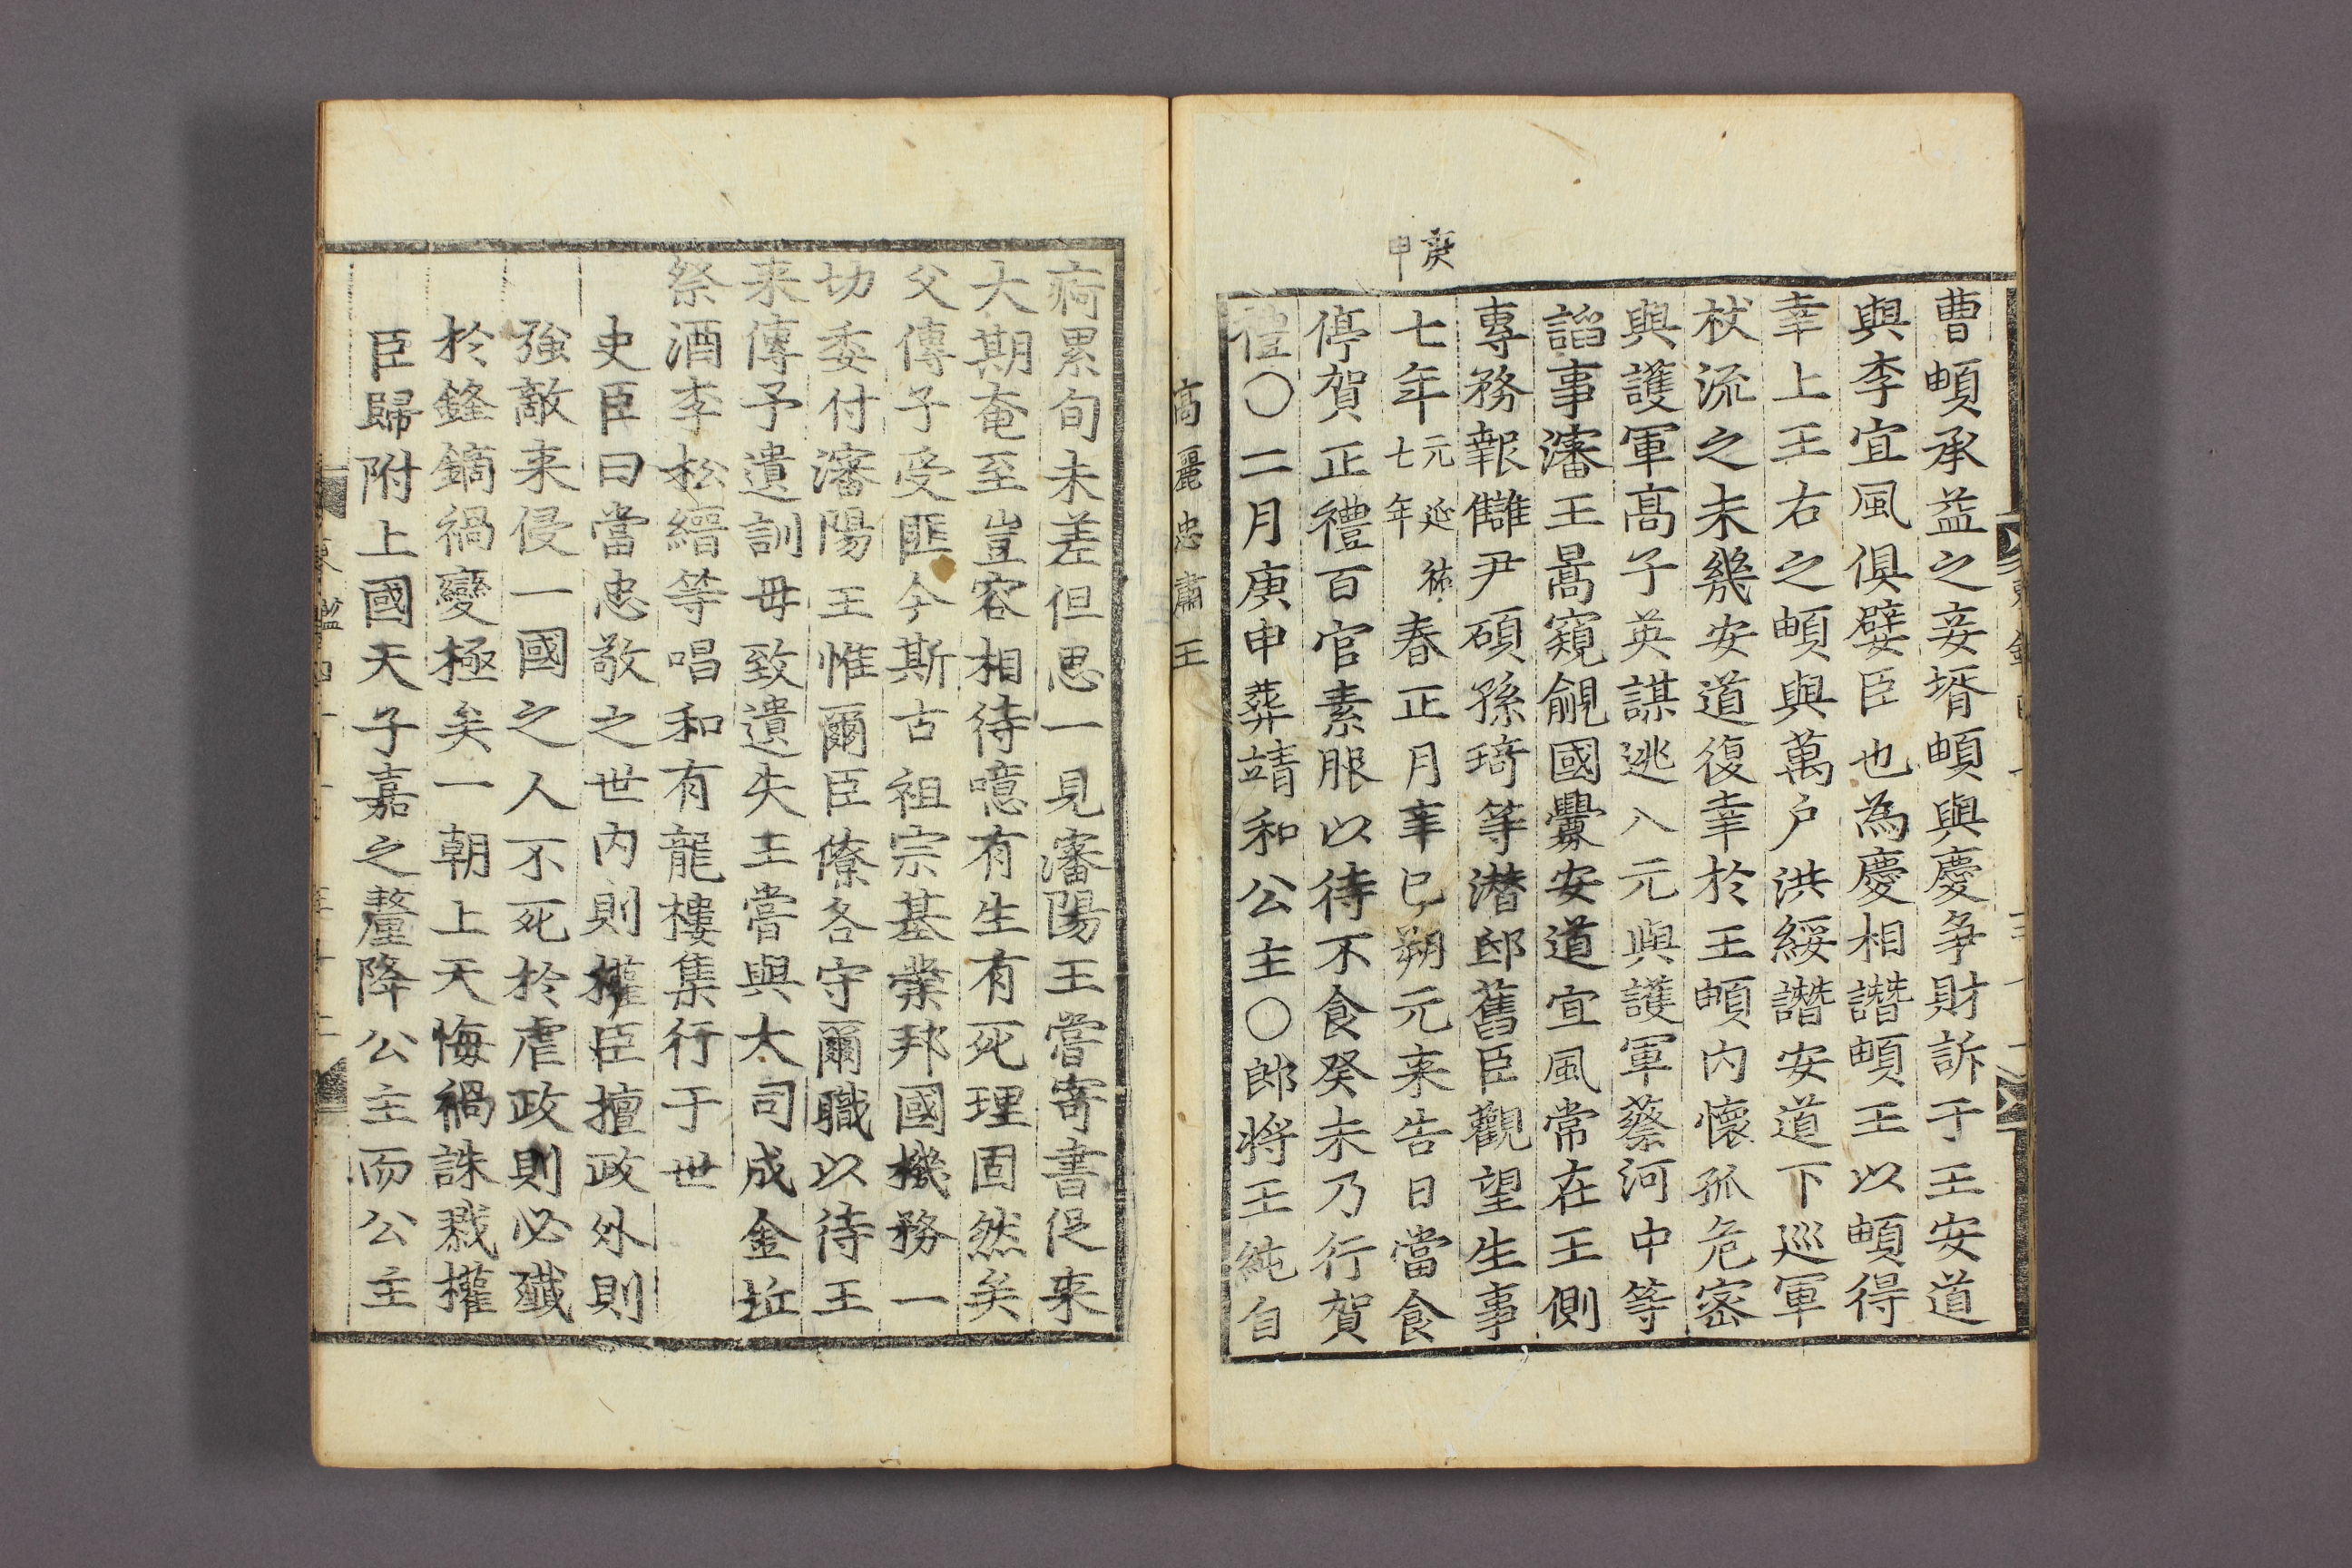 庚申
曹頔承益之妾壻頔與慶爭財訴于王安道
與李宜風俱嬖臣也為慶相譛頔王以頔得
幸上王右之頔與萬户洪綏譛安道下巡軍
杖流之未幾安道復幸於王頔內懷孤危密
與護軍高子英謀逃入元與護軍蔡河中等
謟事瀋王暠窺覦國釁安道宜風常在王側
專務報讎尹碩孫琦等潜邸舊臣觀望生事
七年元延祐七年春正月辛巳朔元来告日當食
停賀正禮百官素服以待不食癸未乃行賀
禮〇二月庚申葬靖和公主〇郎将王純自
高麗忠肅王
痾累旬未差但思一見瀋陽王嘗寄書促来
大期奄至豈容相待噫有生有死理固然矣
父傳子受匪今斯古祖宗基業邦國機務一
切委付瀋陽王惟爾臣僚各守爾職以待王
来傳予遺訓毋致遺失王嘗與大司成金坵
祭酒李松縉等唱和有龍樓集行于世
史臣曰當忠敬之世内則權臣擅政外則
強敵来侵一國之人不死於虐政則必殲
於鋒鏑禍變極矣一朝上天悔禍誅戮權
臣歸附上國天子嘉之釐降公主而公主